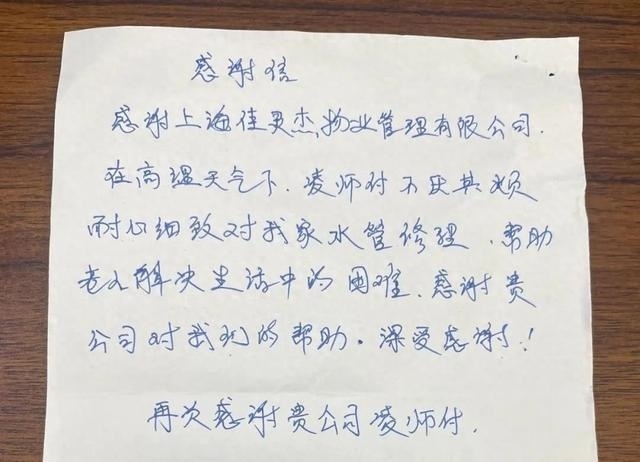 感谢信
感谢上海佳灵杰物业管理有限公司.
在高温天气下.凌师付不厌其烦
耐心细致对我家水管修理.帮助
老人解决生活中的困难.感谢贵
公司对我们的帮助。深受感谢!
再次感谢贵公司凌师付.